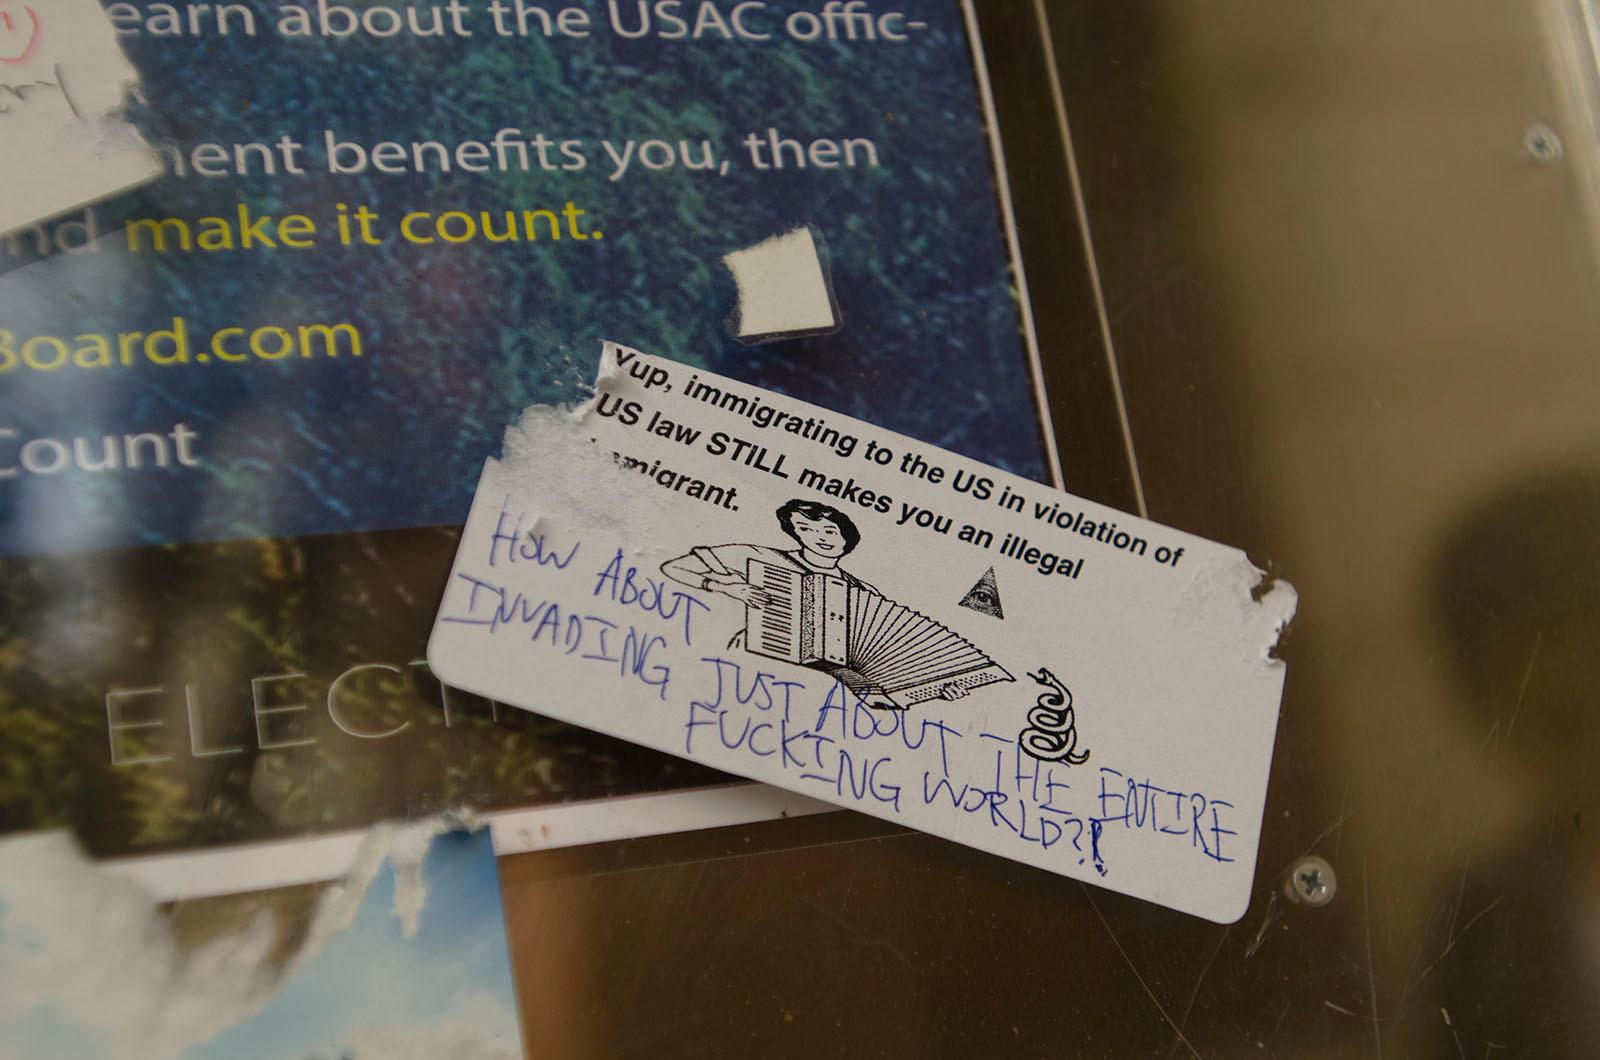 earn about the USAC offic-
benefits you, then
make it count.
Board.com
Count
ELECT
Yup, immigrating to the US in violation of
US law STILL makes you an illegal
immigrant.
HOW ABOUT
INVADING JUST ABOUT THE ENTIRE
FUCKING WORLD?!